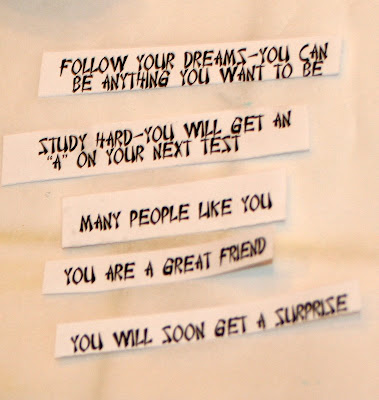 FOLLOW YOUR DREAMS-YOU CAN
BE ANYTHING YOU WANT TO BE
STUDY HARD-YOU WILL GET AN
"A" ON YOUR NEXT TEST
MANY PEOPLE LIKE YOU
YOU ARE A GREAT FRIEND
YOU WILL SOON GET A SURPRISE